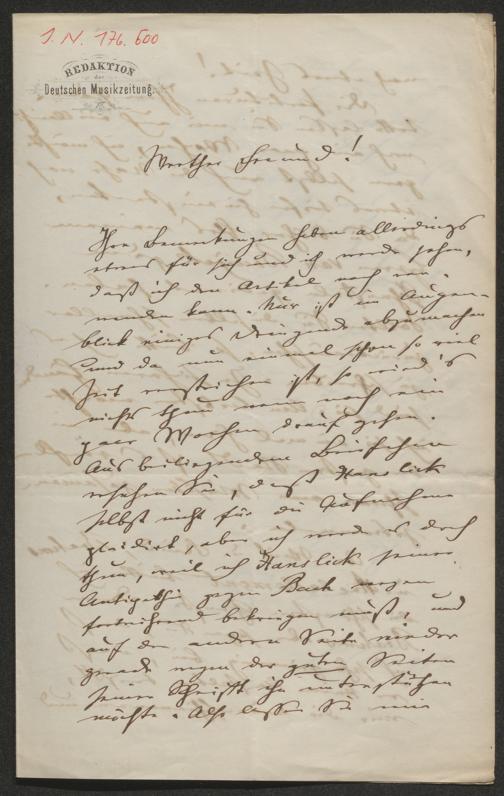 J. N. 176.600
REDAKTION
der
Deutschen Musikzeitung.
Werther Freund!
Ihre Bemerkungen haben allerdings
etwas für sich und ich werde sehen,
daß ich den Artikel noch ver-
wenden kann. Nur ist im Augen-
blick einiges Dringende abzumachen
und da nun einmal schon so viel
Zeit verstrichen ist, so wird's
nichts thun wenn noch ein
paar Wochen drauf gehen.
Aus beiliegendem Briefchen
ersehen Sie, daß Hanslick
selbst nicht für die Aufnahme
plaidirt, aber ich werde es doch
thun, weil ich Hanslick seiner
Antipathie gegen Bach wegen
fortwährend bekriegen muß, und
auf der andern Seite wieder
gerade wegen der guten Seiten
seiner Schrift ihn unterstützen
möchte. Also lassen Sie mir